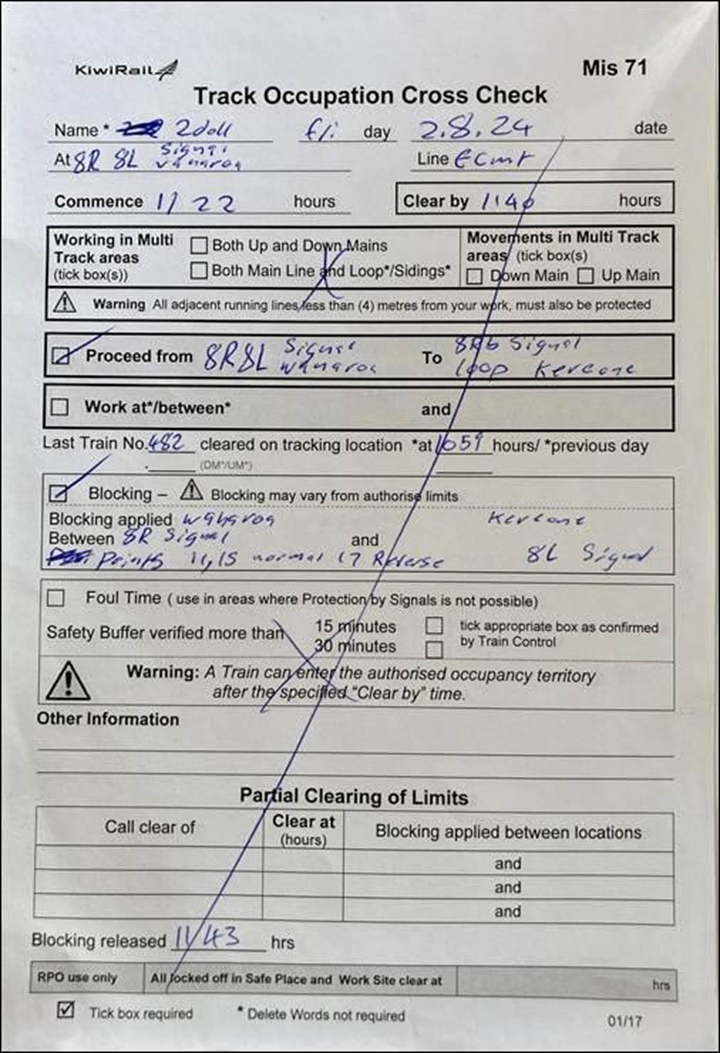 KiwiRail Mis 71
Track Occupation Cross Check
Name * 2doll fri day 2.8.24 date
At 8R 8L Signal waharoa Line ECMT
Commence 1122 hours Clear by 1140 hours
Working in Multi Track areas (tick box(s)) Both Up and Down Mains
Both Main Line and Loop*/Sidings*
Movements in Multi Track areas (tick box(s)
Down Main Up Main
Warning All adjacent running lines less than (4) metres from your work, must also be protected
Proceed from 8R8L Signal waharoa To 8Rb Signal loop Kereone
Work at*/between* and
Last Train No. 482 cleared on tracking location *at 1059 hours/ *previous day
(DM*/UM*)
Blocking – Blocking may vary from authorise limits
Blocking applied waharoa Kereone
Between 8R Signal and 8L Signal
Points 11,15 normal 17 Reverse
Foul Time ( use in areas where Protection by Signals is not possible)
Safety Buffer verified more than 15 minutes
30 minutes
tick appropriate box as confirmed
by Train Control
Warning: A Train can enter the authorised occupancy territory
after the specified "Clear by" time.
Other Information
Partial Clearing of Limits
Call clear of Clear at (hours) Blocking applied between locations
and
and
and
Blocking released 1143 hrs
RPO use only All locked off in Safe Place and Work Site clear at hrs
Tick box required * Delete Words not required 01/17